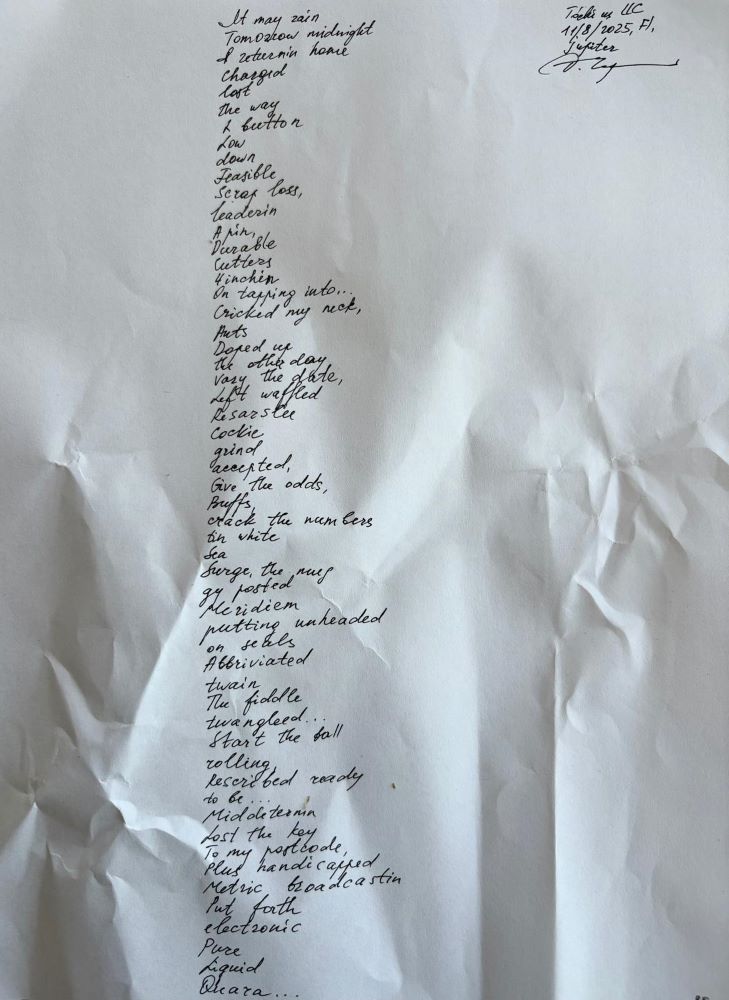 It may rain
Tomorrow midnight
I returnin home
Charged
lost
the way
A button
Low
down
Feasible
Scrap loss,
leaderin
A pin,
Durable
Cutters
4inchin
On tapping into...
Cricked my neck,
Puts
Doped up
the other day
Vary the date,
Left waffled
Cockie
grind
accepted,
Give the odds,
Buffs,
crack the numbers
tin white
Sea
Surge, the mug
gy posted
Meridiem
putting unheaded
on seals
Abbriviated
twain
The fiddle
twangleed...
Start the ball
rolling,
Rescribed ready
to be...
Midditermin
Lost the key
To my postcode,
Plus handicapped
Metric broadcastin
Put forth
electronic
Pure
Liquid
Quara...
us LLC
11/8/2025, Fl,
Jupiter